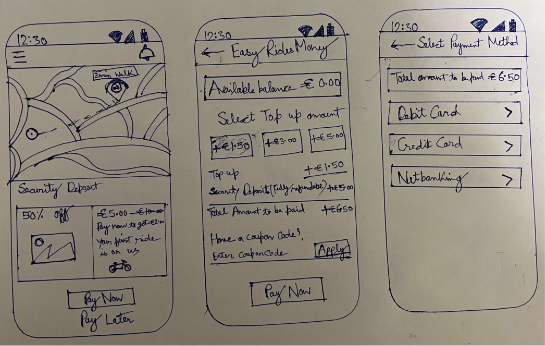 12:30
2min Walk
Security Deposit
50% off
€5.00 €10.00
Pay now to get €2.00
Your first ride
is on us
Pay Now
Pay Later
12:30
← Easy Rides Money
Available balance = € 0.00
Select Top up amount
+€1.50
+€3.00
+€5.00
Top up +€1.50
Security Deposit (fully refundable) +€5.00
Total Amount to be paid +€6.50
Have a Coupon Code?
Enter Coupon Code
Apply
Pay Now
12:30
← Select Payment Method
Total amount to be paid €6.50
Debit Card >
Credit Card >
Netbanking >